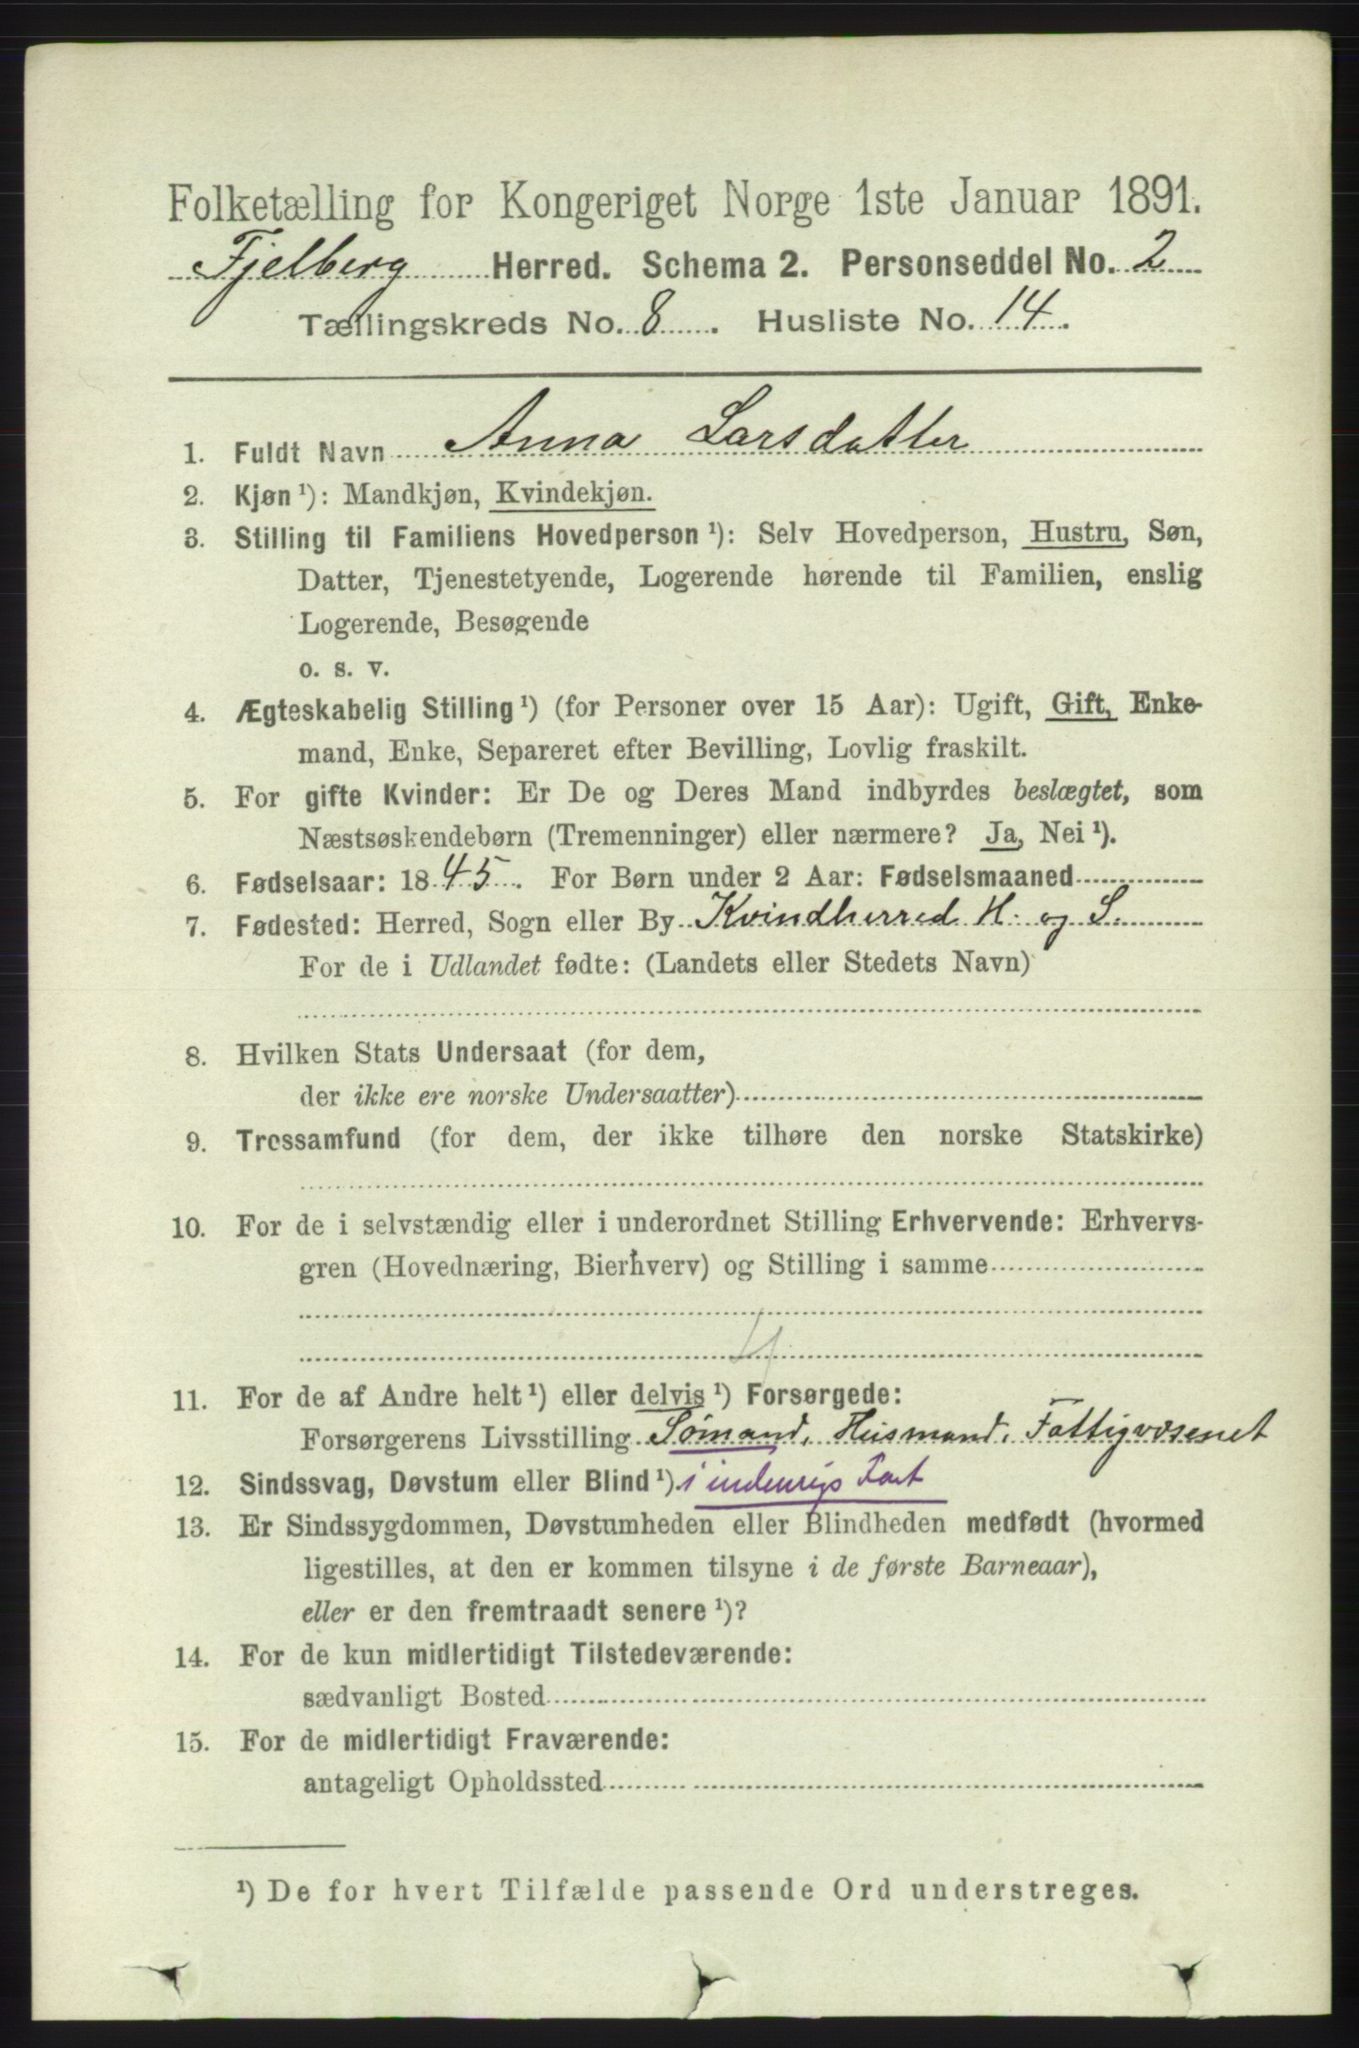 Folketælling for Kongeriget Norge 1ste Januar 1891.
Fjelberg Herred. Schema 2. Personseddel No. 2
Tællingskreds No. 8. Husliste No. 14.
1. Fuldt Navn Anna Larsdatter
2. Kjøn ¹): Mandkjøn, Kvindekjøn.
3. Stilling til Familiens Hovedperson ¹): Selv Hovedperson, Hustru, Søn,
Datter, Tjenestetyende, Logerende hørende til Familien, enslig
Logerende, Besøgende
o. s. v.
4. Ægteskabelig Stilling ¹) (for Personer over 15 Aar): Ugift, Gift, Enke-
mand, Enke, Separeret efter Bevilling, Lovlig fraskilt.
5. For gifte Kvinder: Er De og Deres Mand indbyrdes beslægtet, som
Næstsøskendebørn (Tremenninger) eller nærmere? Ja, Nei ¹).
6. Fødselsaar: 1845. For Børn under 2 Aar: Fødselsmaaned
7. Fødested: Herred, Sogn eller By Kvindherred H. og S.
For de i Udlandet fødte: (Landets eller Stedets Navn)
8. Hvilken Stats Undersaat (for dem,
der ikke ere norske Undersaatter)
9. Trossamfund (for dem, der ikke tilhøre den norske Statskirke)
10. For de i selvstændig eller i underordnet Stilling Erhvervende: Erhvervs-
gren (Hovednæring, Bierhverv) og Stilling i samme
4
11. For de af Andre helt ¹) eller delvis ¹) Forsørgede:
Forsørgerens Livsstilling Sømand, Husmand, Fattigvæsenet
12. Sindssvag, Døvstum eller Blind ¹). i indenrigs Fart
13. Er Sindssygdommen, Døvstumheden eller Blindheden medfødt (hvormed
ligestilles, at den er kommen tilsyne i de første Barneaar),
eller er den fremtraadt senere ¹)?
14. For de kun midlertidigt Tilstedeværende:
sædvanligt Bosted
15. For de midlertidigt Fraværende:
antageligt Opholdssted
¹) De for hvert Tilfælde passende Ord understreges.